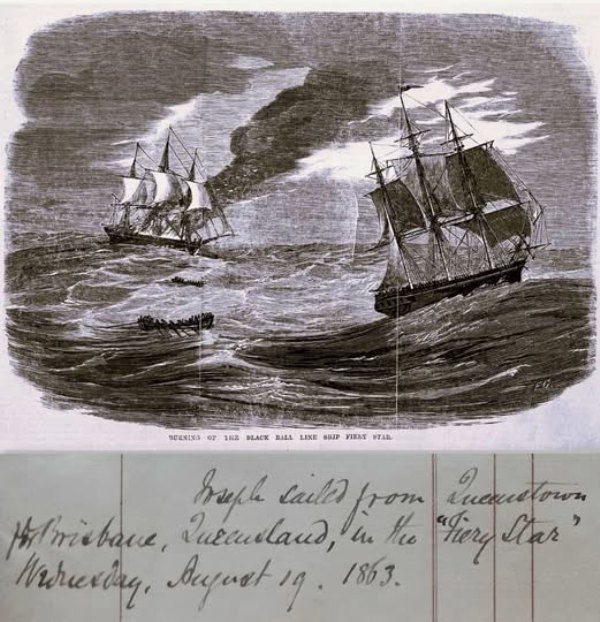 BURNING OF THE BLACK BALL LINE SHIP FIERY STAR.
Joseph sailed from Queenstown
for Brisbane, Queensland, in the "Fiery Star"
Wednesday, August 19. 1863.